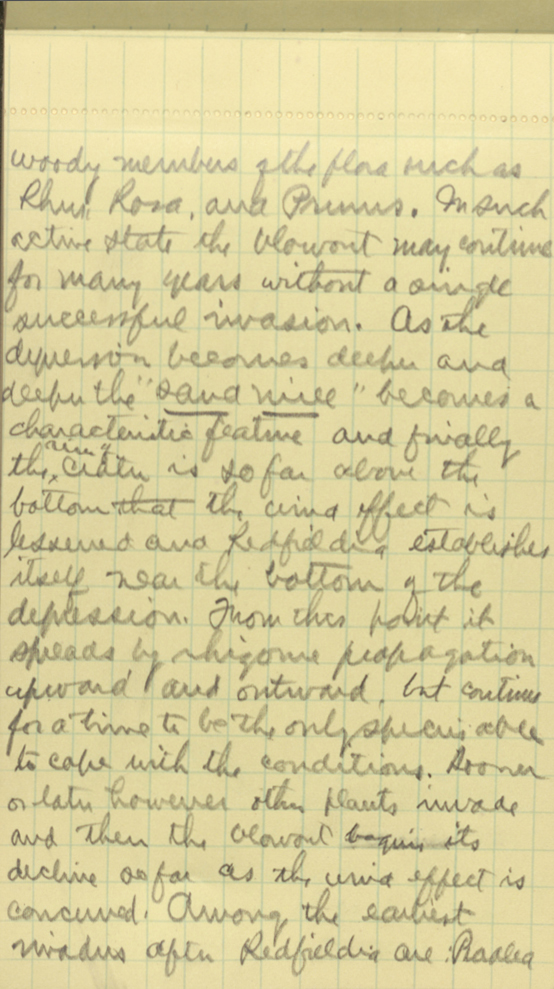 woody members of the flora such as
Rhus, Rosa, and Prunus. In such
active state the blowout may continue
for many years without a single
successful invasion. As the
depression becomes deeper and
deeper the "sand mill" becomes a
characteristic feature and finally
the rim of crater is so far above the
bottom that the wind effect is
lessened and Redfieldia establishes
itself near the bottom of the
depression. From this point it
spreads by rhizome propagation
upward and outward, but continues
for a time to be the only species able
to cope with the conditions. Sooner
or later however other plants invade
and then the blowout begins its
decline so far as the wind effect is
concerned. Among the earliest
invaders after Redfieldia are: